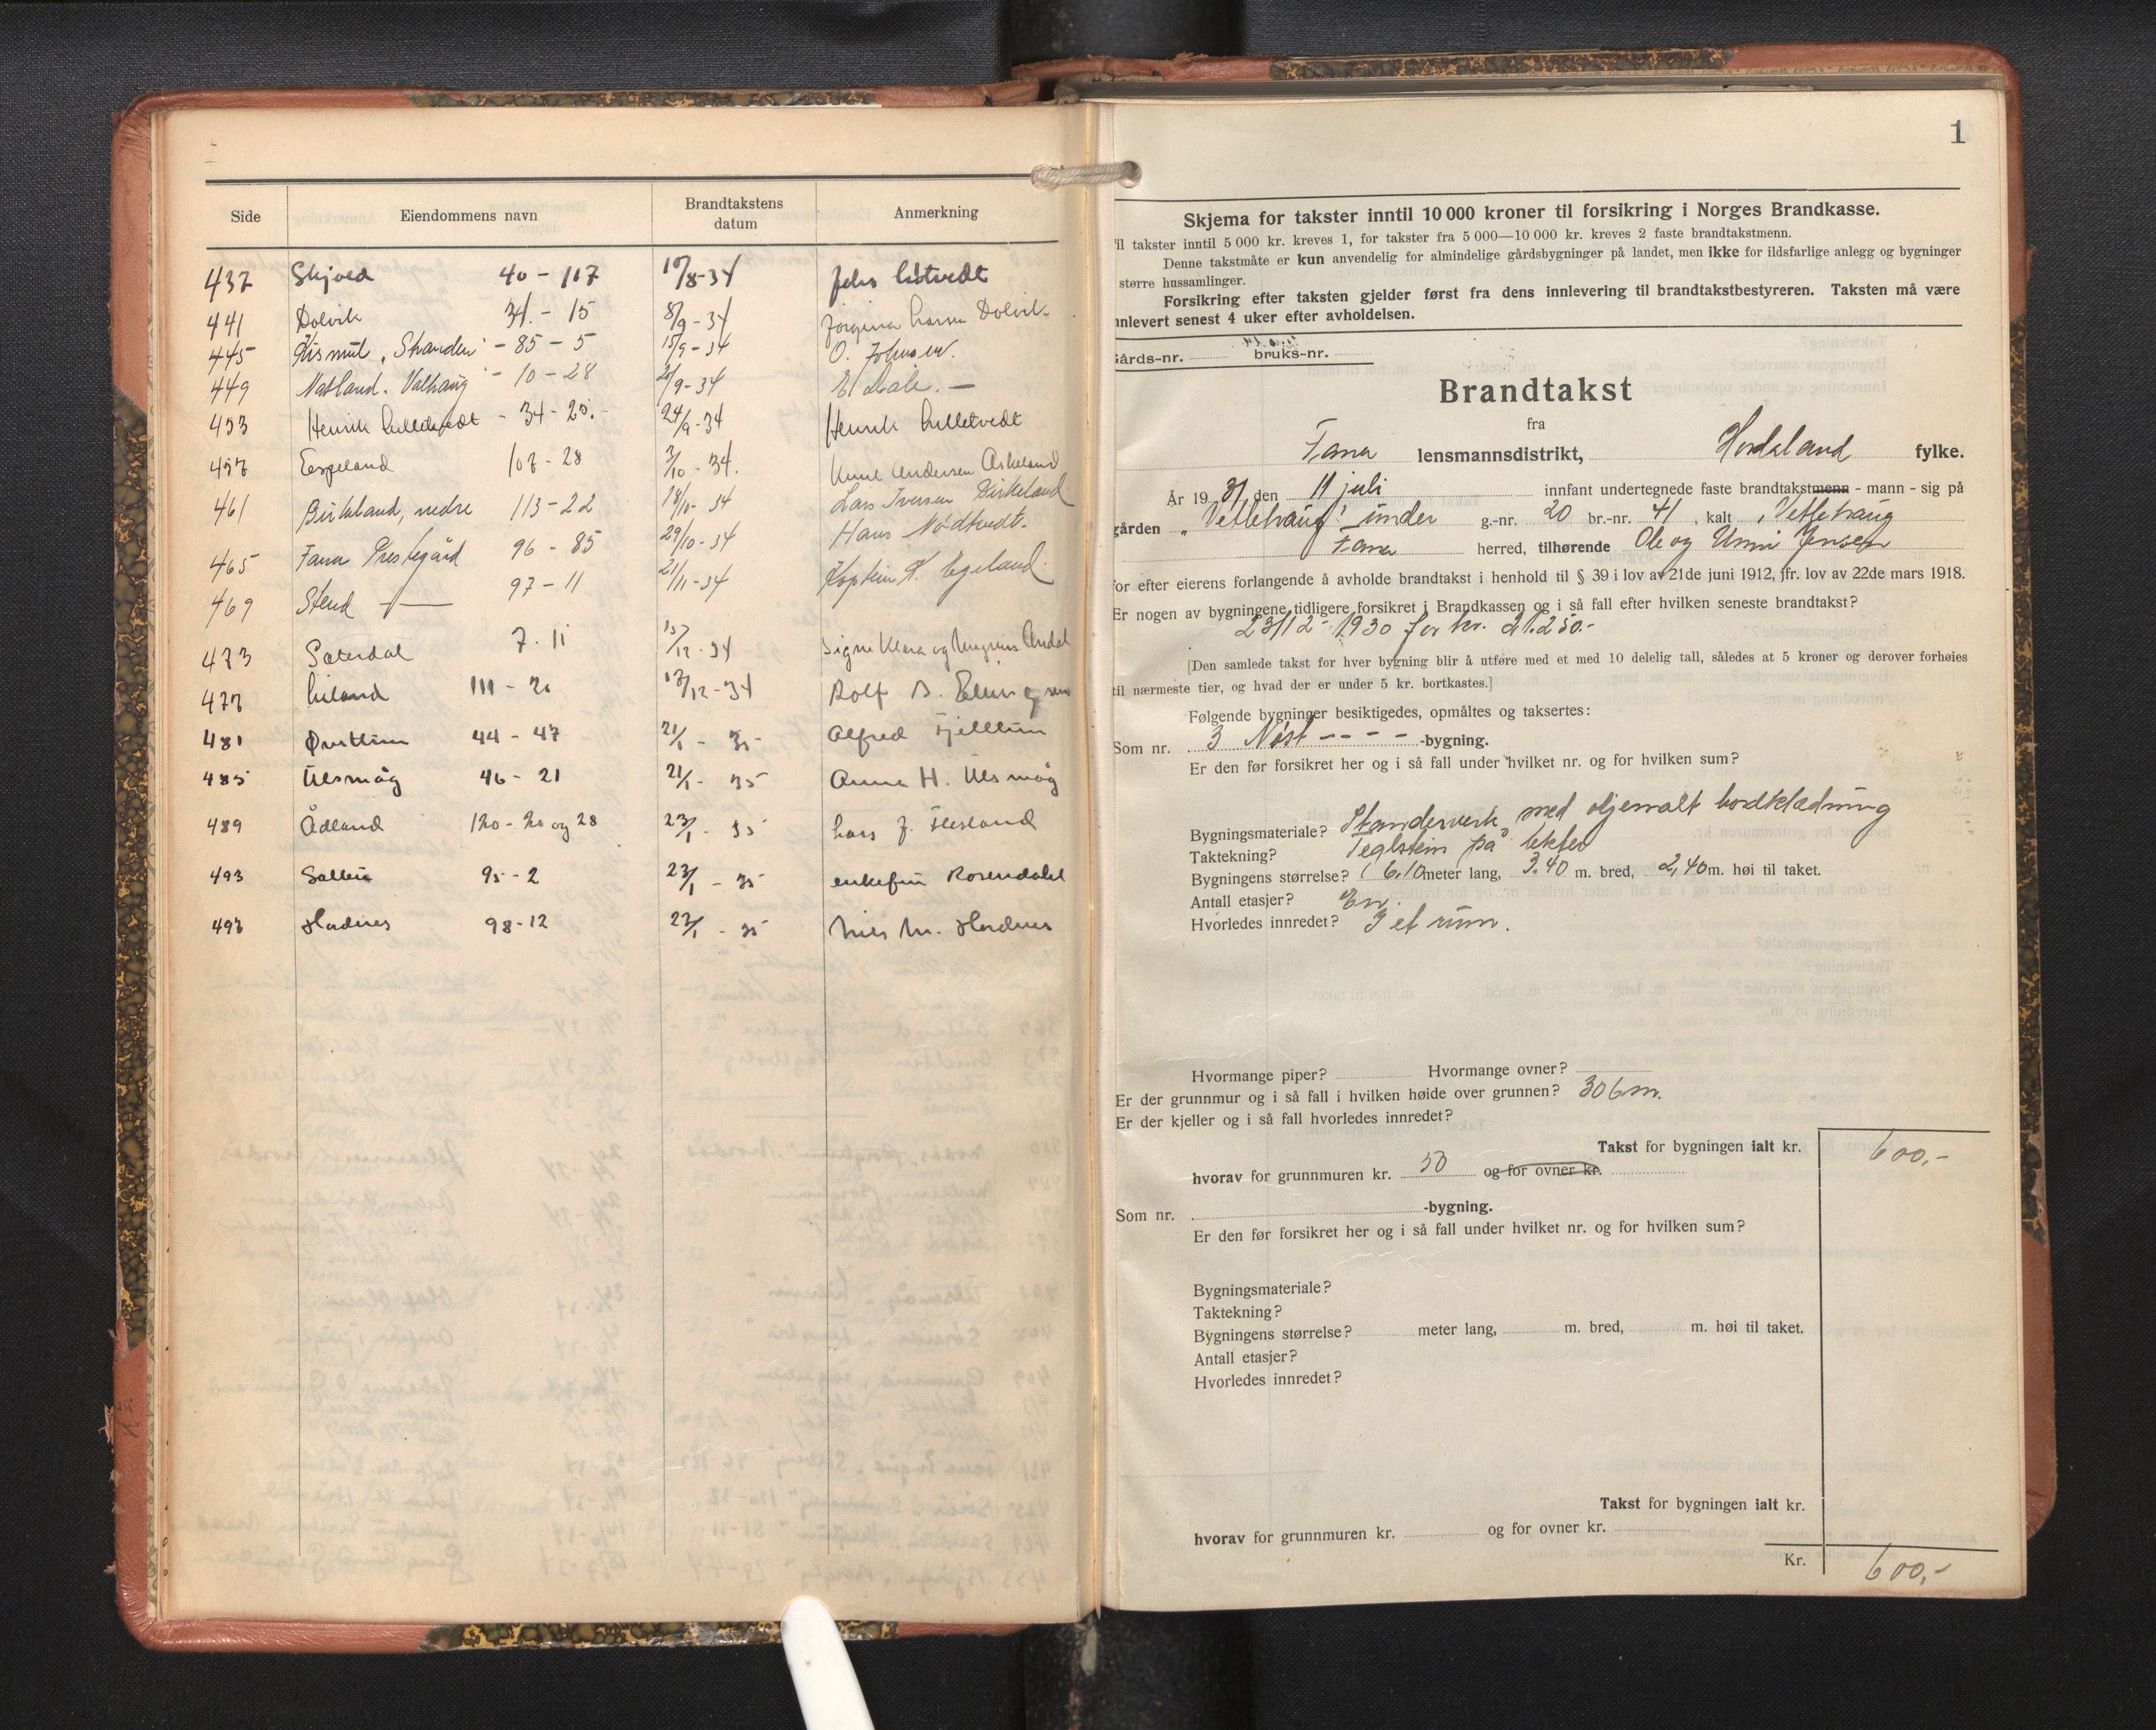 Side Eiendommens navn Brandtakstens datum Anmerkning
437 Skjold 40 - 117 10/8-34
441 Dolvik 34. - 15 8/9 - 34 Jørgina Larsen Dolvik
445 "Stranden" - 85 - 5 15/9 - 34 O. Johnsen.
449 Natland. Valhaug - 10 - 28 /9-34
453 Henrik Lilletvedt - 34 - 25. 24/9-34 Henrik Lilletvedt
457 Espeland 107 - 28 3/10 - 34. Knut Andersen Askeland
461 Birkeland, nedre 113 - 22 18/10 - 34 Lars Iversen Birkeland
465 Fana Prestegård 96 - 85 29/10 - 34 Hans Nødtvedt.
469 Stend 97 - 11 21/11 - 34 Kaptein K. Egeland.
473 Sæterdal 7 - 11 15/12 - 34 Signe Klara og Magnus
477 Liland 111 - 21 17/12 - 34 Rolf B.
481 Øvsttun 44 - 47 21/1 - 35 Alfred Fjelltun
485 Ulsmåg 46 - 21 21/1 - 35 Anna H. Ulsmåg
489 Ådland 120 - 20 og 28 23/1 - 35 Lars J. Flesland
493 95 - 2 23/1 - 35 enkefru Rosendahl
493 Hordnes 98 - 12 23/1 - 35 Nils M. Hordnes
1
Skjema for takster inntil 10 000 kroner til forsikring i Norges Brandkasse.
il takster inntil 5 000 kr. kreves 1, for takster fra 5 000—10 000 kr. kreves 2 faste brandtakstmenn.
Denne takstmåte er kun anvendelig for almindelige gårdsbygninger på landet, men ikke for ildsfarlige anlegg og bygninger
større hussamlinger.
Forsikring efter taksten gjelder først fra dens innlevering til brandtakstbestyreren. Taksten må være
nnlevert senest 4 uker efter avholdelsen.
årds-nr. bruks-nr.
Brandtakst
fra
Fana lensmannsdistrikt, Hordaland fylke.
År 19 31 den 11 juli innfant undertegnede faste brandtakstmenn - mann - sig på
gården "Vetlehaug" under g.-nr. 20 br.-nr. 41, kalt "Vetlehaug
Fana herred, tilhørende Ole og Unni Jensen
for efter eierens forlangende å avholde brandtakst i henhold til § 39 i lov av 21de juni 1912, jfr. lov av 22de mars 1918.
Er nogen av bygningene tidligere forsikret i Brandkassen og i så fall efter hvilken seneste brandtakst?
23/12 - 1930 for kr. 21.250.-
[Den samlede takst for hver bygning blir å utføre med et med 10 delelig tall, således at 5 kroner og derover forhøies
til nærmeste tier, og hvad der er under 5 kr. bortkastes.]
Følgende bygninger besiktigedes, opmåltes og taksertes:
Som nr. 3 Nøst - - - - -bygning.
Er den før forsikret her og i så fall under hvilket nr. og for hvilken sum?
Bygningsmateriale? Standerverk med oljemalt bordklædning
Taktekning? Teglstein på lekter
Bygningens størrelse? 6,10 meter lang, 3.40 m. bred, 2,40 m. høi til taket.
Antall etasjer? En.
Hvorledes innredet? I et rum.
Hvormange piper? Hvormange ovner?
Er der grunnmur og i så fall i hvilken høide over grunnen? 30 cm.
Er der kjeller og i så fall hvorledes innredet?
Takst for bygningen ialt kr. 600,-
hvorav for grunnmuren kr. 50 og for ovner kr.
Som nr. -bygning.
Er den før forsikret her og i så fall under hvilket nr. og for hvilken sum?
Bygningsmateriale?
Taktekning?
Bygningens størrelse? meter lang, m. bred, m. høi til taket.
Antall etasjer?
Hvorledes innredet?
Takst for bygningen ialt kr.
hvorav for grunnmuren kr. og for ovner kr.
Kr. 600,-